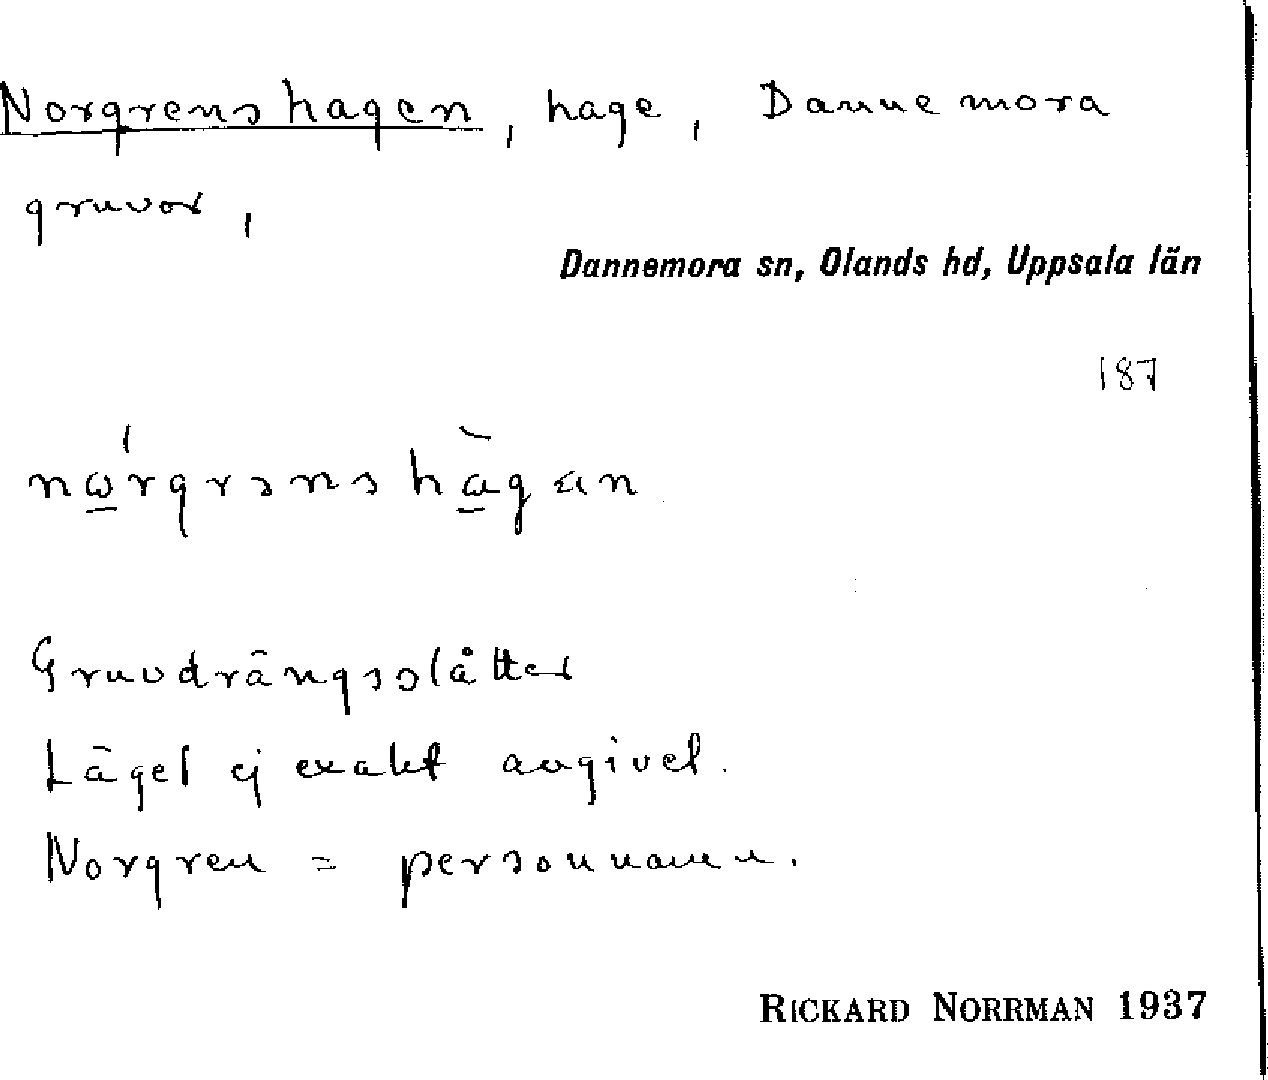 Norgrenshagen, hage, Dannemora
gruvor,
Dannemora sn, Olands hd, Uppsala län
187
nώ̲rgrənshà̲gan
Gruvdrängsslåtter
Läget ej exakt angivet.
Norgren = personnamn.
RICKARD NORRMAN 1937